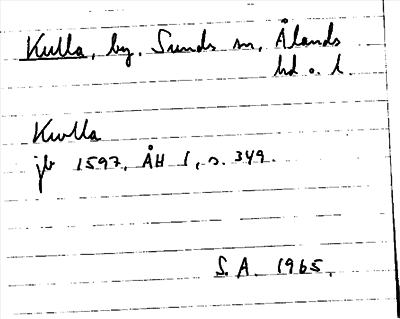 Kulla, by. Sunds sn, Ålands
hd o. l.
Kwlla
jb 1597, ÅH 1, s. 349.
S. A. 1965.